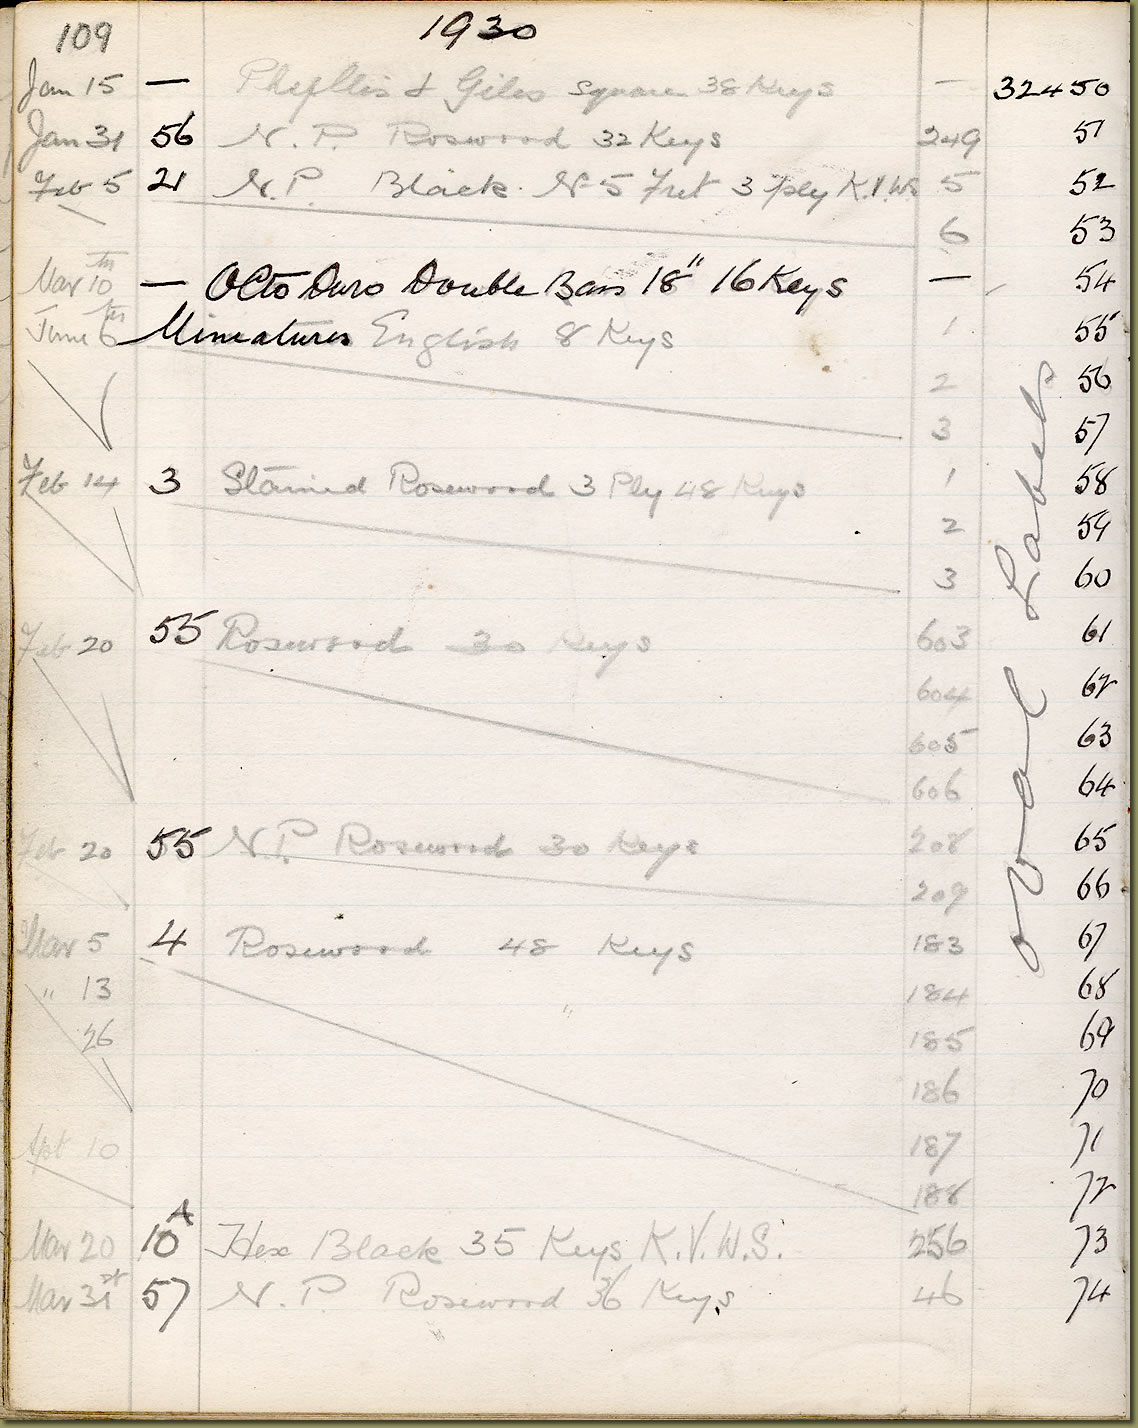 109 1930
Jan 15 — Phyllis & Giles square 38 Keys — 32450
Jan 31 56 N.P. Rosewood 32 Keys 249 51
Feb 5 21 N.P. Black No 5 Fret 3 ply K.V.W. 5 52
6 53
Mar 10th — Octo Duro Double Bass 18" 16 Keys — 54
June 6 Miniatures English 8 Keys 1 55
2 56
3 57
Feb 14 3 Stained Rosewood 3 Ply 48 Keys 1 58
2 59
3 60
Feb 20 55 Rosewood 30 Keys 603 61
604 62
605 63
606 64
Feb 20 55 N.P. Rosewood 30 Keys 208 65
209 66
Mar 5 4 Rosewood 48 Keys 183 67
" 13 184 68
26 185 69
186 70
Apl 10 187 71
188 72
Mar 20 10A Hex Black 35 Keys K.V.W.S. 256 73
Mar 31st 57 N.P. Rosewood 36 Keys 46 74
Oval Labels